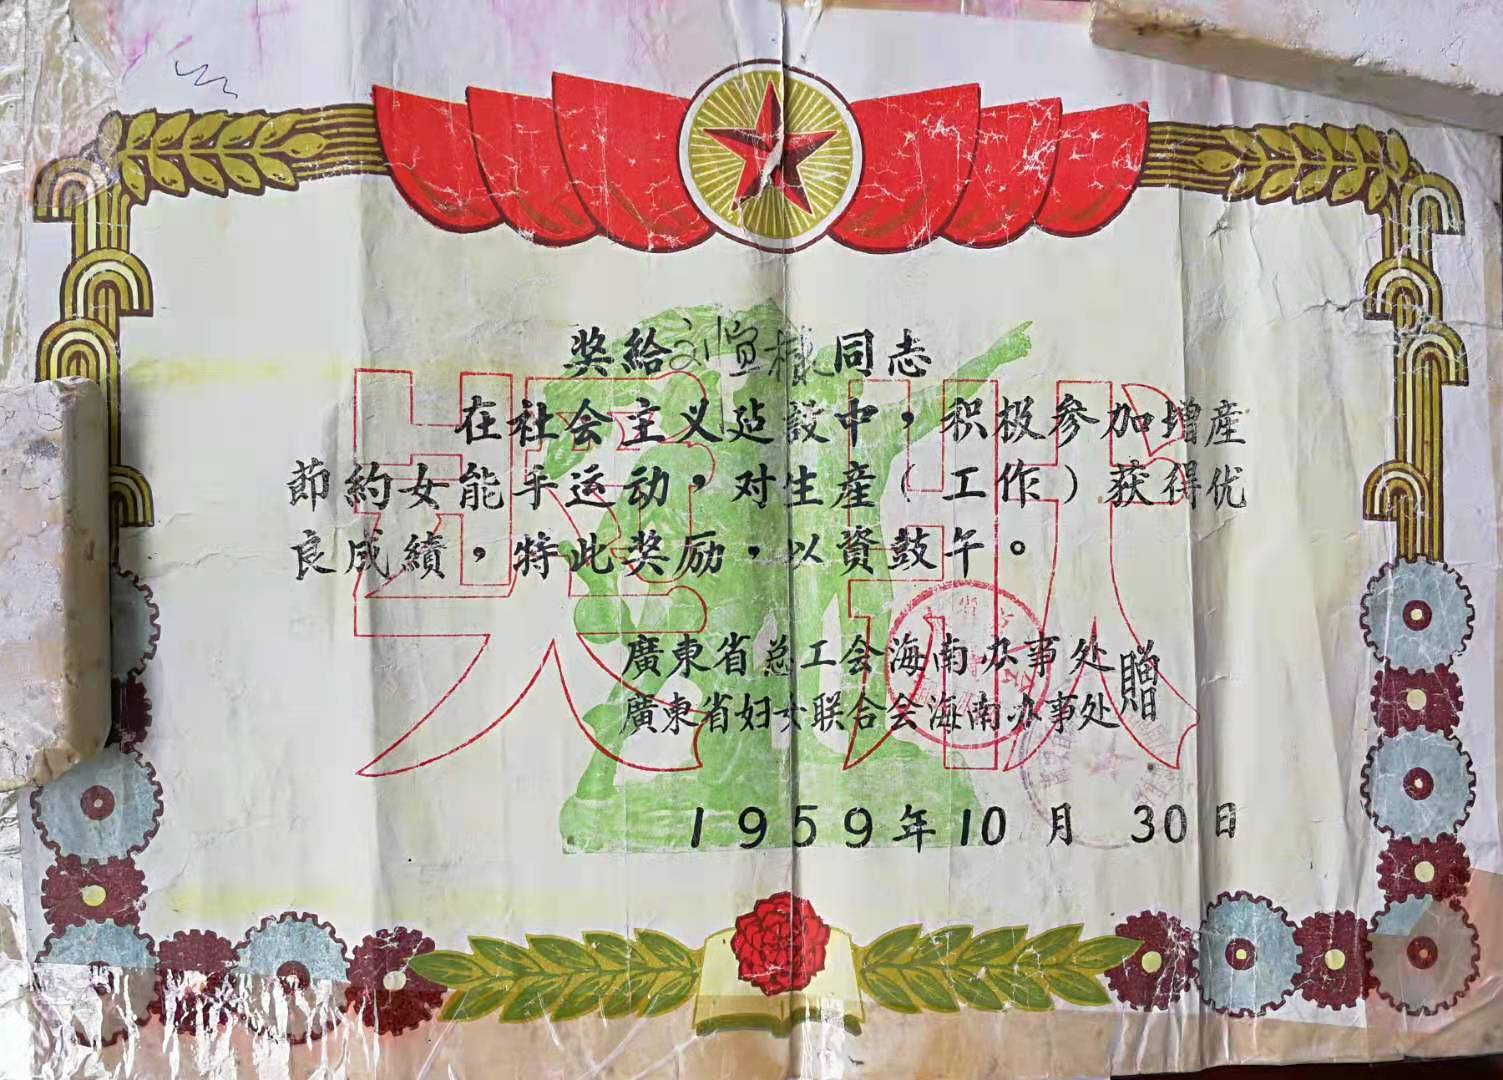 奖給刘宣槐同志
在社会主义建設中，积极参加增産
節約女能手运动，对生産（工作）获得优
良成績，特此奖励，以資鼓午。
奖状
廣東省总工会海南办事处
廣東省妇女联合会海南办事处
贈
1959年10月30日